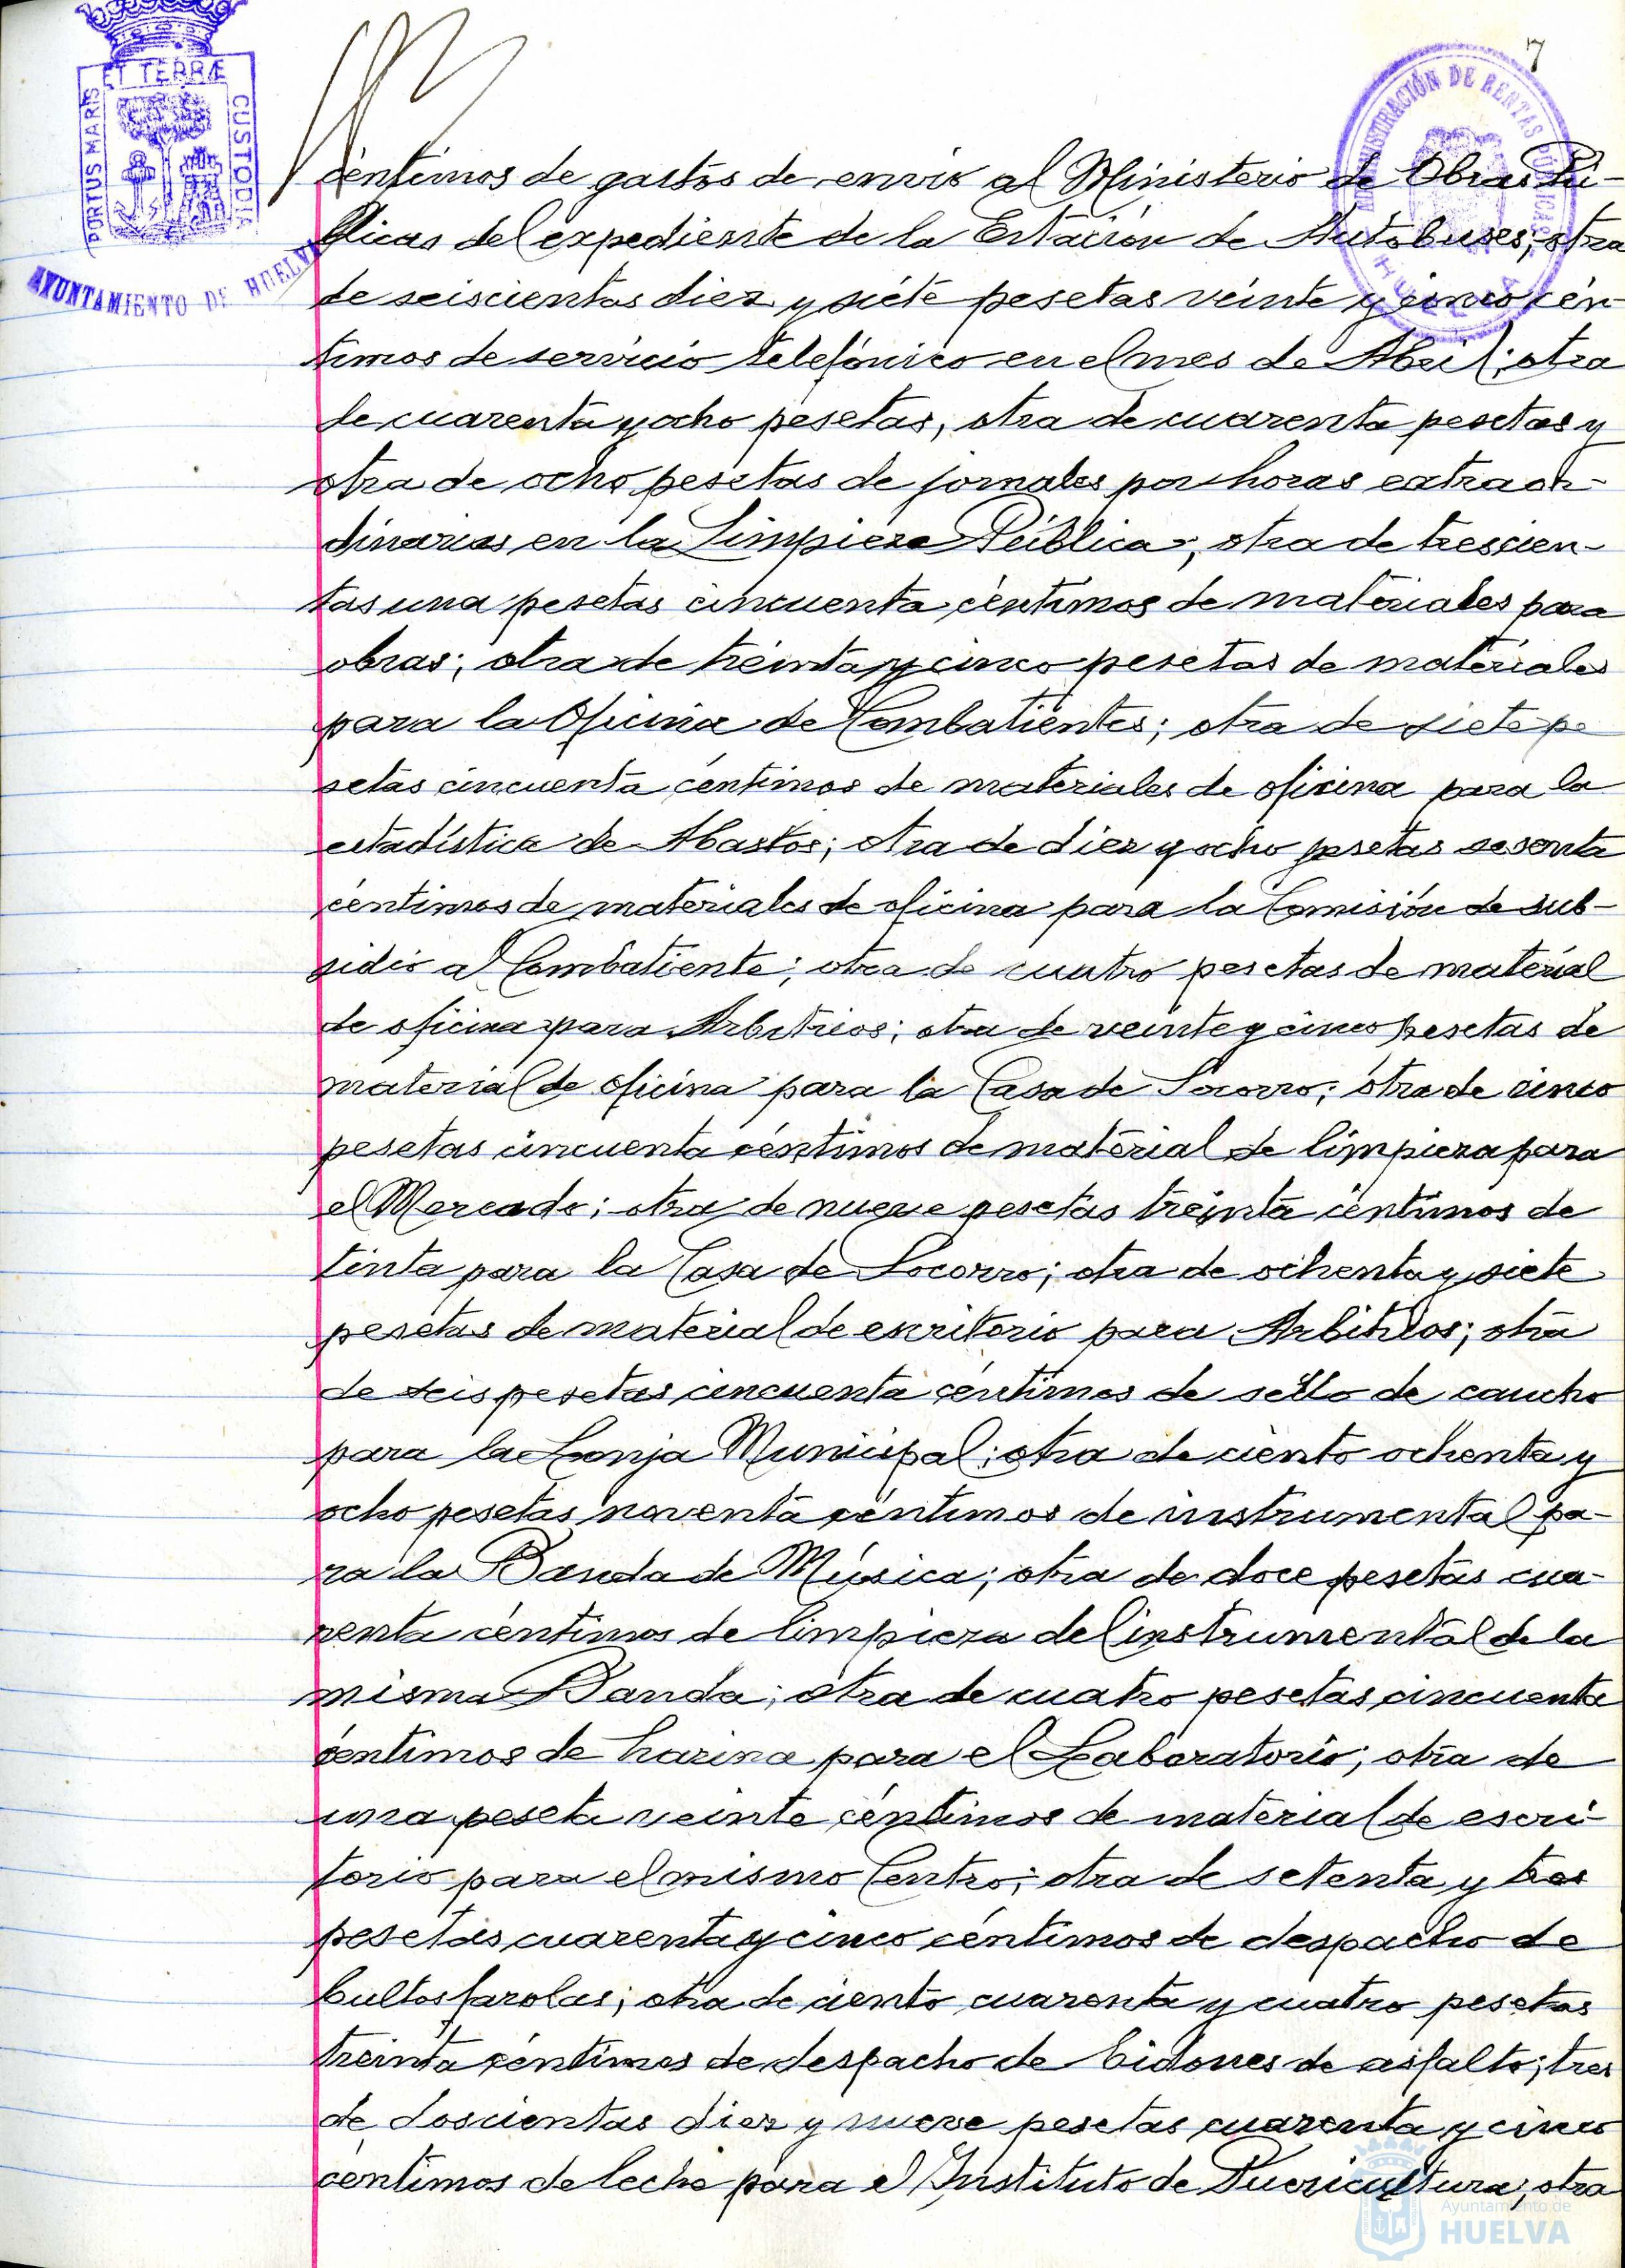 7
PORTUS MARIS ET TERRÆ CUSTODIA
AYUNTAMIENTO DE HUELVA
ADMINISTRACIÓN DE RENTAS PÚBLICAS
HUELVA
céntimos de gastos de envio al Ministerio de Obras Pú-
blicas del expediente de la Estación de Autobuses; otra
de seiscientas diez y siete pesetas veinte y cinco cén-
timos de servicio telefónico en el mes de Abril; otra
de cuarenta y ocho pesetas, otra de cuarenta pesetas y
otra de ocho pesetas de jornales por horas extraor-
dinarias en la Limpieza Pública; otra de trescien-
tas una pesetas cincuenta céntimos de materiales para
obras; otra de treinta y cinco pesetas de materiales
para la Oficina de Combatientes; otra de siete pe
setas cincuenta céntimos de materiales de oficina para la
estadística de Abastos; otra de diez y ocho pesetas sesenta
céntimos de materiales de oficina para la Comisión de sub-
sidio al Combatiente; otra de cuatro pesetas de material
de oficina para Arbitrios; otra de veinte y cinco pesetas de
material de oficina para la Casa de Socorro; otra de cinco
pesetas cincuenta céntimos de material de limpieza para
el Mercado; otra de nueve pesetas treinta céntimos de
tinta para la Casa de Socorro; otra de ochenta y siete
pesetas de material de escritorio para Arbitrios; otra
de seis pesetas cincuenta céntimos de sello de caucho
para la Lonja Municipal; otra de ciento ochenta y
ocho pesetas noventa céntimos de instrumental pa-
ra la Banda de Música; otra de doce pesetas cua-
renta céntimos de limpieza del instrumental de la
misma Banda; otra de cuatro pesetas cincuenta
céntimos de harina para el Laboratorio; otra de
una peseta veinte céntimos de material de escri-
torio para el mismo Centro; otra de setenta y tres
pesetas cuarenta y cinco céntimos de despacho de
bultos farolas; otra de ciento cuarenta y cuatro pesetas
treinta céntimos de despacho de bidones de asfalto; tres
de doscientas diez y nueve pesetas cuarenta y cinco
céntimos de leche para el Instituto de Puericultura; otra
Ayuntamiento de
HUELVA